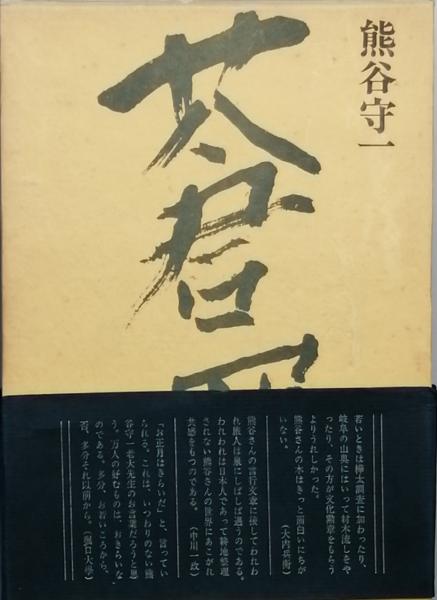 熊谷守一
蒼
若いときは樺太調査に加わったり、
岐阜の山奥にはいって材木流しをや
ったり、その方が文化勲章をもらう
よりうれしかった。
熊谷さんの本はきっと面白いにちが
いない。 (大内兵衛)
熊谷さんの言行文章に接してわれわ
れ旅人は風にしばしば遇うのである。
われわれは日本人であって耕地整理
されない熊谷さんの世界にあこがれ
共感をもつのである。 (中川一政)
「お正月はきらいだ」と、言ってい
られる。これは、いつわりのない熊
谷守一老大先生のお言葉だろうと思
う。万人の好むものは、おきらいな
のである。多分、お若いころから、
否、多分それ以前から。(堀口大學)